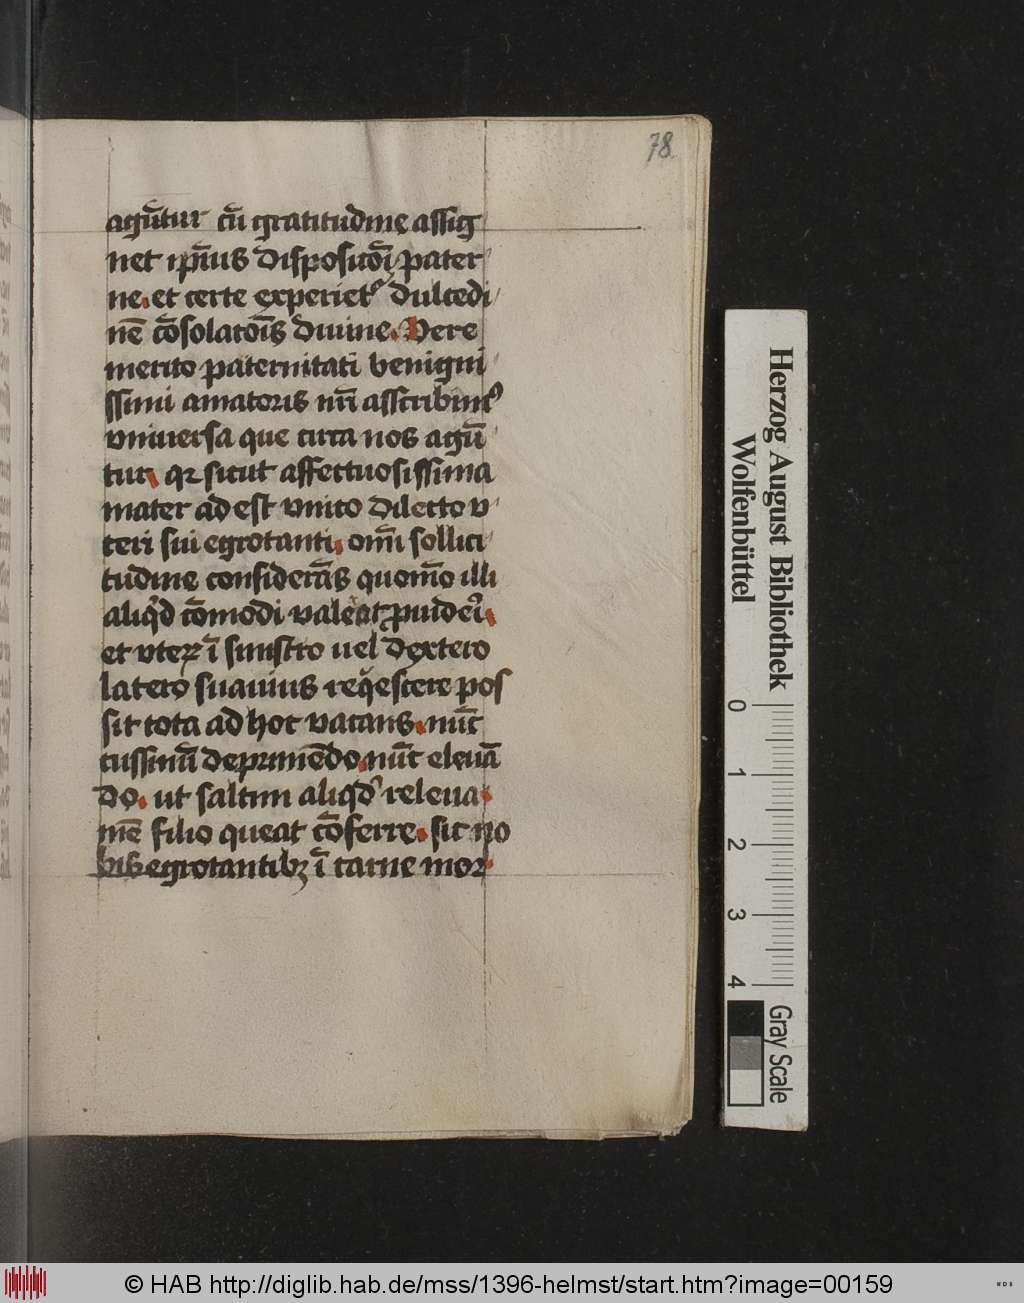 78.
agūtur cū gratitudine assig
net ipīus disposicōi pater
ne. et certe experiet᷒ dulcedi
nē cōsolacōīs diuine. Vere
merito paternitati benigni
ssimi amatoris nr̄i asscribunt᷒
vniuersa que circa nos agū
tur, qꝛ sicut affectuosissima
mater ad est vnico dilecto v
teri sui egrotanti, omī sollici
tudine considerās quomō illi
aliqͥd cōmodi valeat ꝓuideri.
et vteꝝ ī sinistro uel dextero
latero suauius reqͥescere pos
sit tota ad hoc vacans. nūc
cussinū deprimēdo, nūc eleuā
do. ut saltim aliqͥd releua
mē filio queat cōferre. sic no
bis egrotantibꝫ ī carne mor
Herzog August Bibliothek
Wolfenbüttel
0 1 2 3 4
Gray Scale
© HAB http://diglib.hab.de/mss/1396-helmst/start.htm?image=00159
WDB